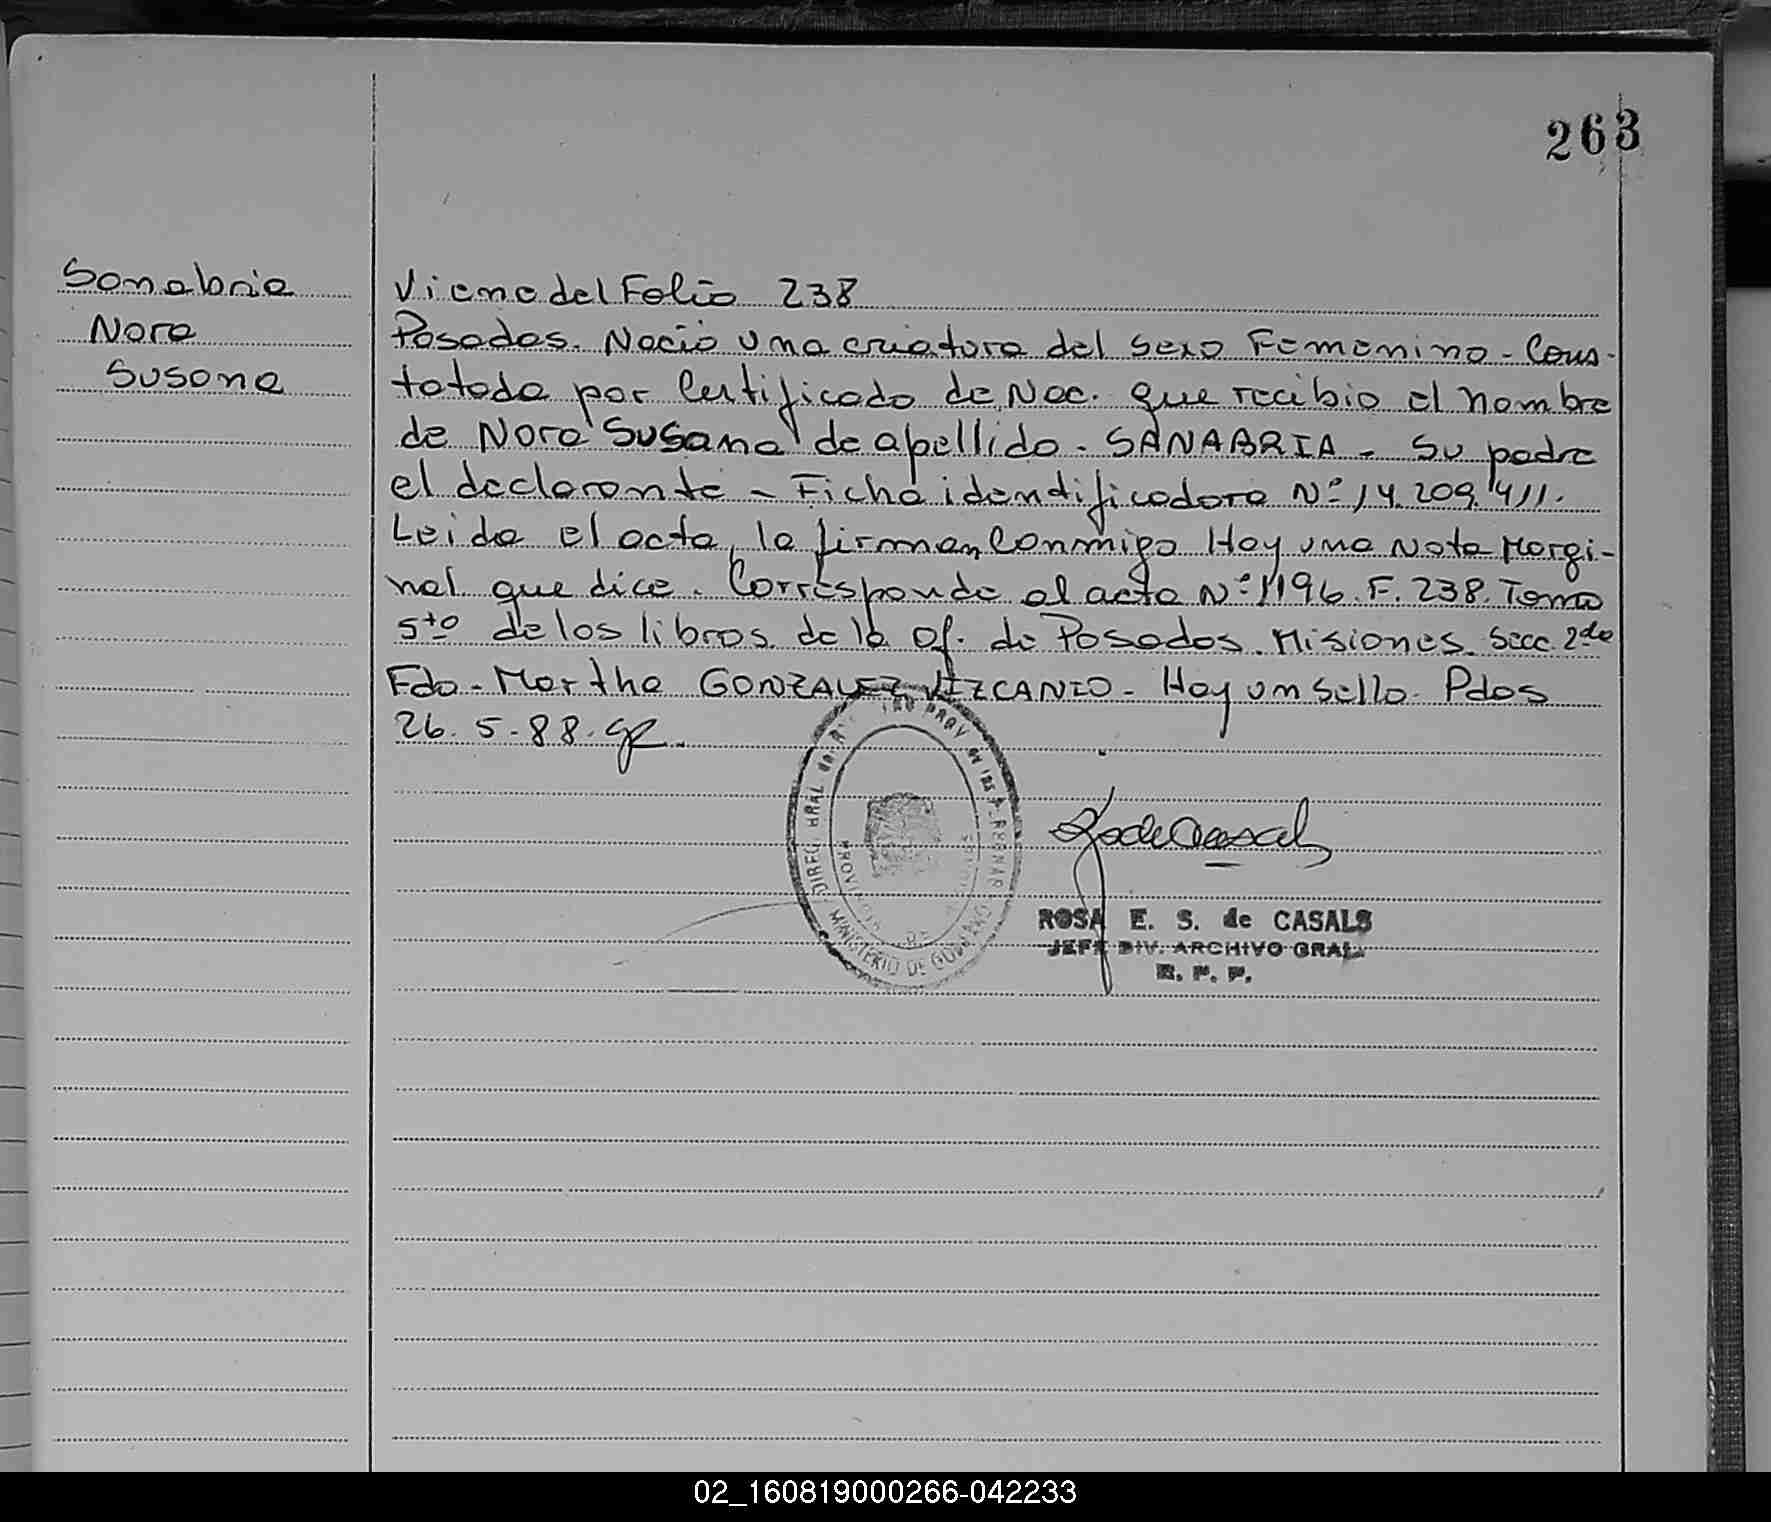 263
Sanabria
Nora
Susana
Viene del Folio 238
Posadas. Nació una criatura del sexo Femenino - Cons-
tatada por Certificado de Nac. que recibio el nombre
de Nora Susana de apellido - SANABRIA - Su padre
el declarante - Ficha identificadora Nº 14.209.411.
Leida el acta, la firman Conmigo Hay una Nota Margi-
nal que dice. Corresponde al acta Nº 1196. F. 238. Tomo
5to de los libros de la Of. de Posadas. Misiones. Secc. 2da
Fdo - Martha GONZALEZ VIZCANIO - Hay un Sello. Pdas
26. 5 - 88.
DIREC. GRAL. PROV. de las PERSONAS
MINISTERIO DE GOBIERNO
PROVINCIA DE MISIONES
R. de Casals
ROSA E. S. de CASALS
JEFE DIV. ARCHIVO GRAL.
R. P. P.
02_160819000266-042233